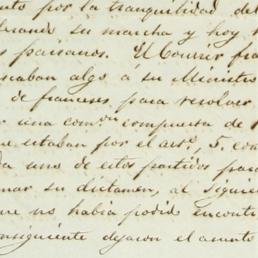 nto por la tranquilidad del
lerando su marcha y hoy
s paisanos. El Courrir fra
scaban algo a su Ministro
de franceses, para resolver
r una comon compuesta de
ue estaban por el asto, 5, con
da uno de estos partidos para
mar su dictamen, al siguie
que no habia podido encont
onsiguiente dejaron el asunto